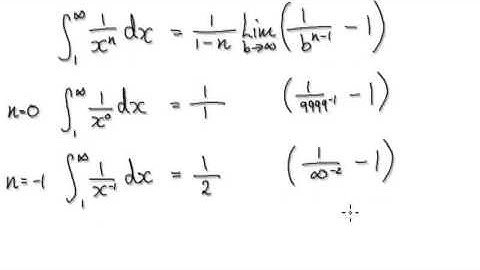 ∫₁^∞ 1/xⁿ dx = 1/(1-n) Lim b→∞ (1/b^(n-1) - 1)
n=0 ∫₁^∞ 1/x⁰ dx = 1/1 (1/9999⁻¹ - 1)
n=-1 ∫₁^∞ 1/x⁻¹ dx = 1/2 (1/∞⁻² - 1)